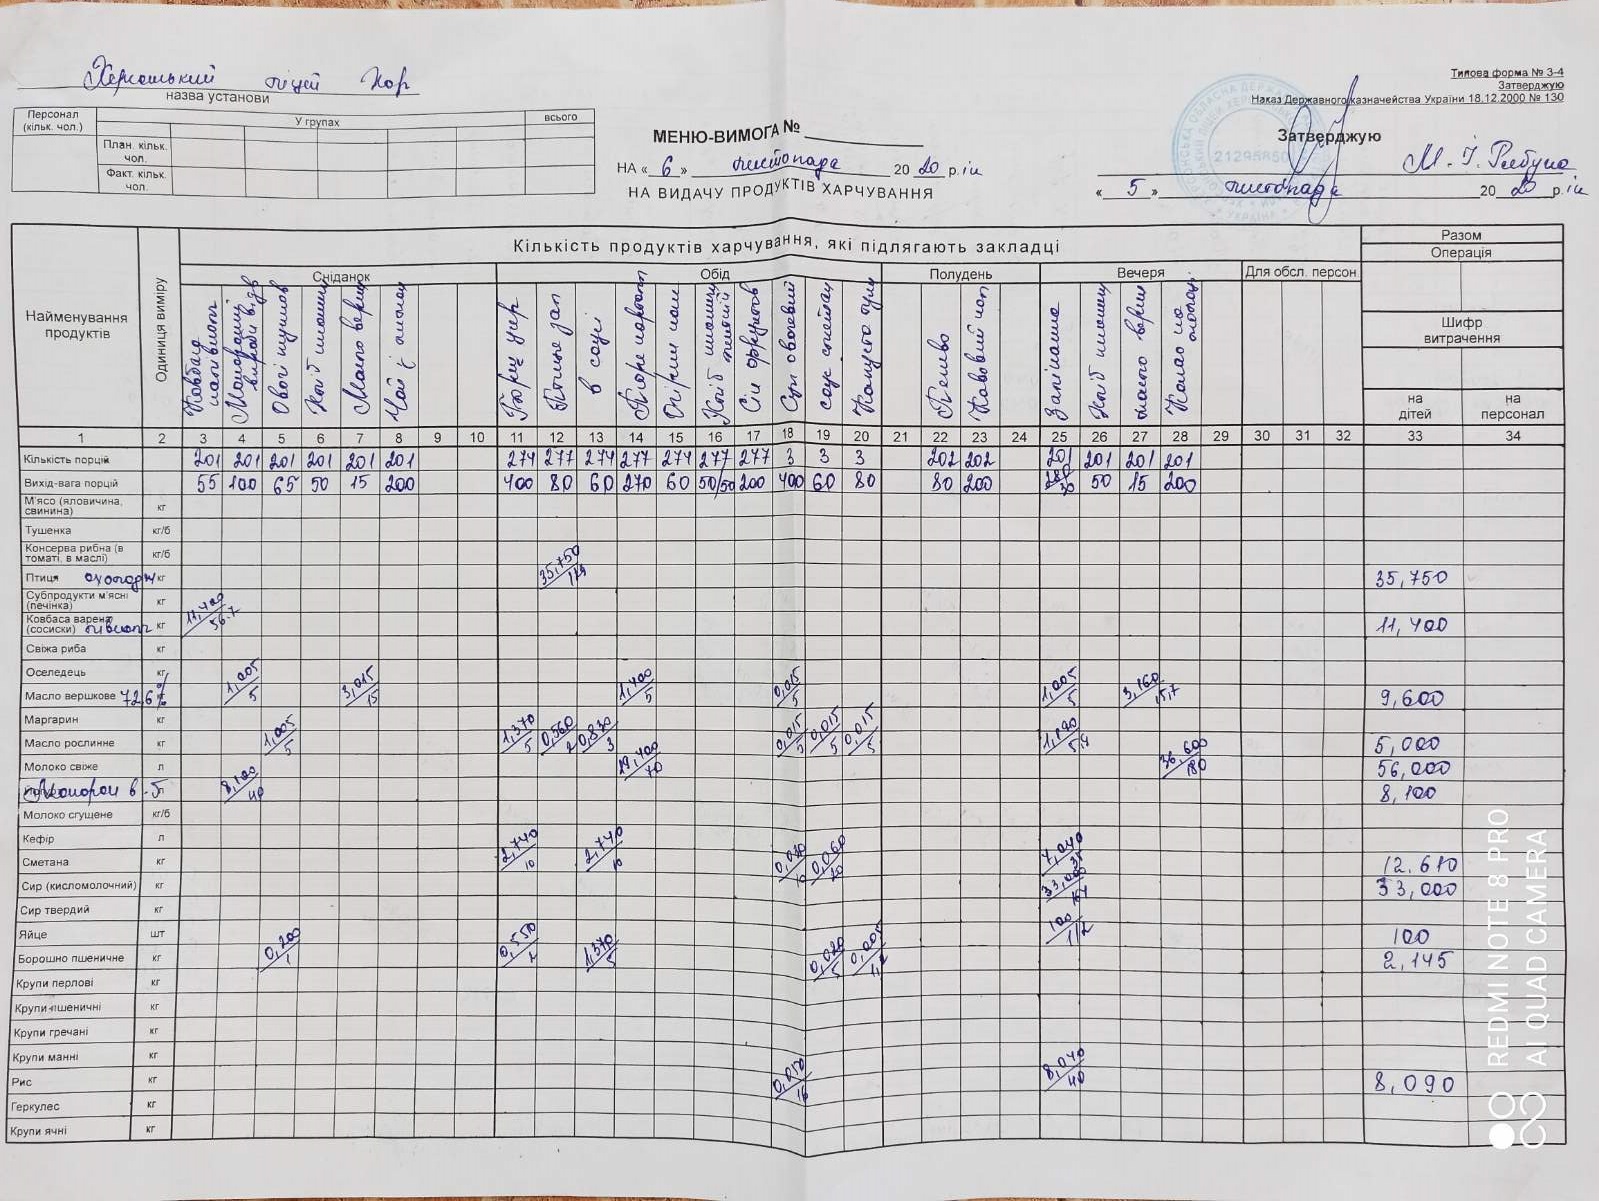 Херсонський ліцей
назва установи
Типова форма № З-4
Затверджую
Наказ Державного казначейства України 18.12.2000 № 130
Персонал (кільк. чол.)
У групах
всього
План. кільк. чол.
Факт. кільк. чол.
МЕНЮ-ВИМОГА №
НА « 6 » листопада 20 20 р.
НА ВИДАЧУ ПРОДУКТІВ ХАРЧУВАННЯ
Затверджую
21295860
« 5 » листопада 20 20 р.
Найменування продуктів
Одиниця виміру
Кількість продуктів харчування, які підлягають закладці
Разом
Операція
Сніданок
Обід
Полудень
Вечеря
Для обсл. персон.
Шифр витрачення
на дітей
на персонал
Ковбаса
Макаронні вироби відв
Овочі
Хліб пшенич
Масло верш
Чай з
Борщ укр
Птиця зап
в соусі
Пюре картоп
Огірки
Хліб пшенич
Сік фруктов
Суп овочевий
соус сметан
Капуста туш
Печиво
Кавовий нап
Запіканка
Хліб пшенич
масло верш
Какао на молоці
1 2 3 4 5 6 7 8 9 10 11 12 13 14 15 16 17 18 19 20 21 22 23 24 25 26 27 28 29 30 31 32 33 34
Кількість порцій 201 201 201 201 201 201 274 277 274 277 274 277 277 3 3 3 202 202 201 201 201 201
Вихід-вага порцій 55 100 65 50 15 200 400 80 60 270 60 50/50 200 400 60 80 80 200 50 15 200
М'ясо (яловичина, свинина) кг
Тушенка кг/б
Консерва рибна (в томаті, в маслі) кг/б
Птиця кг 35,750/129 35,750
Субпродукти м'ясні (печінка) кг
Ковбаса варена (сосиски) кг 11,400/56.7 11,400
Свіжа риба кг
Оселедець кг
Масло вершкове 72,6% 1,005/5 3,015/15 1,400/5 0,015/5 1,005/5 3,160/15,7 9,600
Маргарин кг
Масло рослинне кг 1,005/5 1,370/5 0,560/2 0,830/3 0,015/5 0,015/5 0,015/5 5,000
Молоко свіже л 19,400/70 36,600/180 56,000
8,100/40 8,100
Молоко сгущене кг/б
Кефір л
Сметана кг 2,740/10 2,740/10 0,060/20 12.610
Сир (кисломолочний) кг 33,000
Сир твердий кг
Яйце шт 100 100
Борошно пшеничне кг 0,200/1 0,550/2 1,370/5 2,145
Крупи перлові кг
Крупи пшеничні кг
Крупи гречані кг
Крупи манні кг
Рис кг 0,050/16 8,040/40 8,090
Геркулес кг
Крупи ячні кг
REDMI NOTE 8 PRO
AI QUAD CAMERA